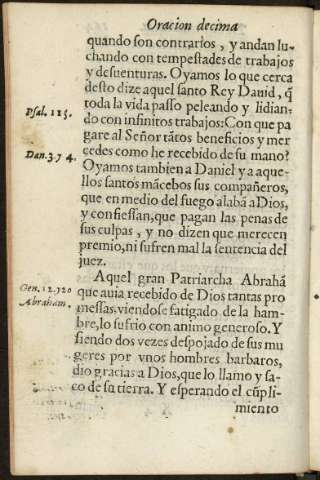 Oracion decima
quando son contrarios, y andan lu-
chando con tempestades de trabajos
y desuenturas. Oyamos lo que cerca
desto dize aquel santo Rey Dauid, q̃
toda la vida passo peleando y lidian-
Psal. 115.
do con infinitos trabajos: Con que pa
gare al Señor tãtos beneficios y mer
Dan. 3. 7 4.
cedes como he recebido de su mano?
Oyamos tambien a Daniel y a aque-
llos santos mãcebos sus compañeros,
que en medio del fuego alabã a Dios,
y confiessan, que pagan las penas de
sus culpas, y no dizen que merecen
premio, ni sufren mal la sentencia del
juez.
Aquel gran Patriarcha Abrahã
Gen. 12. y 20
que auia recebido de Dios tantas pro
Abraham.
messas, viendose fatigado de la ham-
bre, lo sufrio con animo generoso. Y
siendo dos vezes despojado de sus mu
geres por vnos hombres barbaros,
dio gracias a Dios, que lo llamo y sa-
co de su tierra. Y esperando el cũpli-
miento